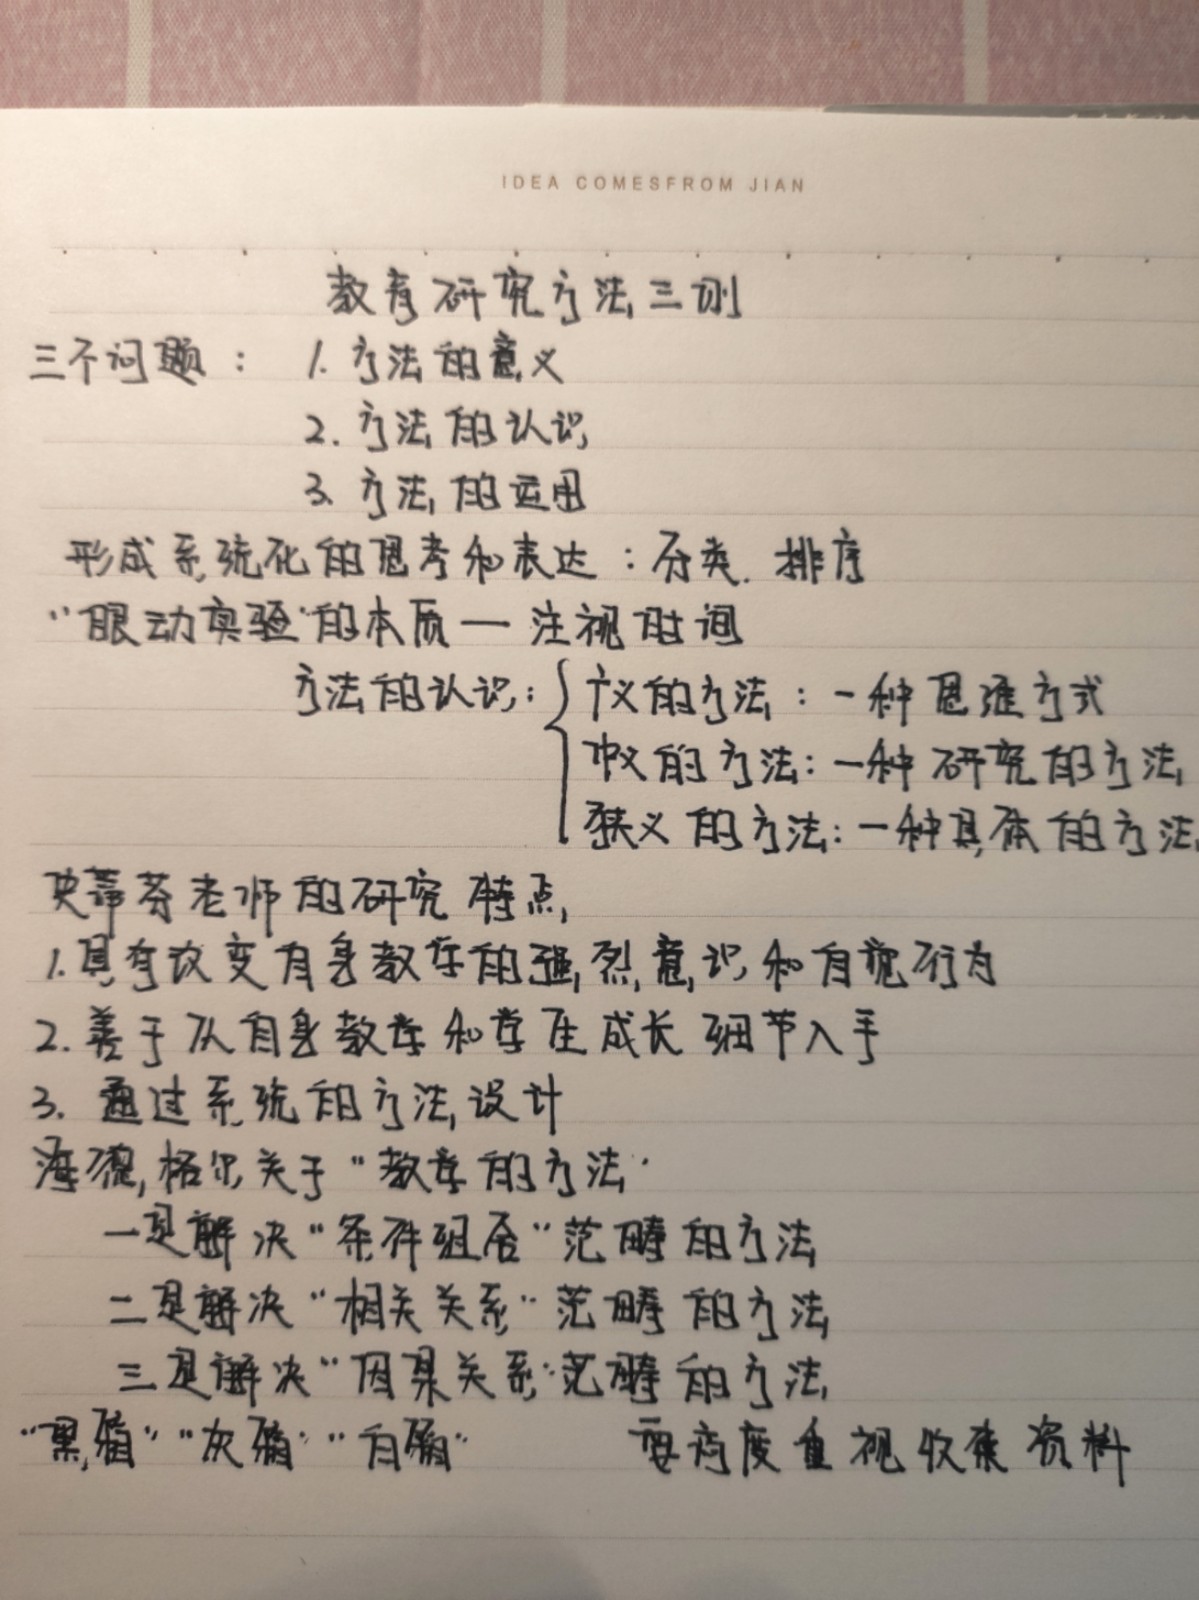 IDEA COMESFROM JIAN
教育研究方法三则
三个问题： 1. 方法的意义
2. 方法的认识
3. 方法的运用
形成系统化的思考和表达：分类、排序
“眼动实验”的本质一注视时间
方法的认识： 广义的方法：一种思维方式
中义的方法：一种研究的方法
狭义的方法：一种具体的方法
老师的研究特点
1.具有改变自身教学的强烈意识和自觉行为
2.善于从自身教学和学生成长细节入手
3. 通过系统的方法设计
海德格尔关于“教学的方法”
一是解决“条件组合”范畴的方法
二是解决“相关关系”范畴的方法
三是解决“因果关系”范畴的方法
“黑箱”“灰箱”“白箱” 要高度重视收集资料